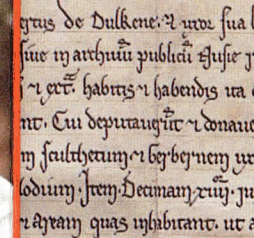 ertus de Dulkene. ⁊ uxor sua
siue in archiuũ publicũ
⁊ ext̃. habitis ⁊ habendis ita
nt. Cui deputauer̃t ⁊ donaue
in scultherum ⁊ ber bernem ux
lodium. Item. Decimam xiiii. iu
⁊ Aream quas inhabitant. ut a